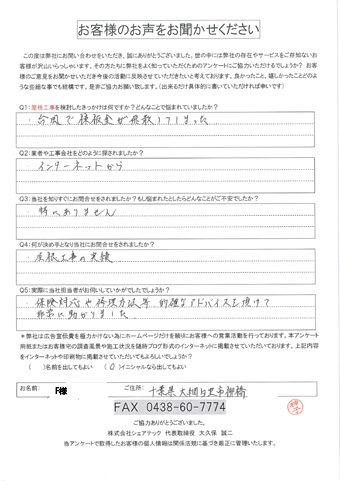 お客様のお声をお聞かせください
この度は弊社にお問い合わせをいただき、誠にありがとうございました。世の中には弊社の存在やサービスをご存知ないお
客様が沢山いらっしゃいます。その方たちに弊社をよく知っていただくためのアンケートにご協力いただけるでしょうか？ お客
様のご意見をお聞かせいただき今後の活動に反映させていただきたいと考えております。良かったこと、嬉しかったことどのよ
うな些細な事でも結構です。是非ご協力お願い致します。（出来るだけ具体的に書いていただければ幸いです）
Q1：屋根工事を検討したきっかけは何ですか？どんなことで悩まれていましたか？
・台風で棟板金が飛散してしまった
Q2：業者や工事会社をどのように探されましたか？
・インターネットから
Q3：当社を知りすぐにお問合せをされましたか？もし悩まれたとしたらどんなことがご不安でしたか？
・特にありません
Q4：何が決め手となり当社にお問合せされましたか？
・屋根工事の実績
Q5：実際に当社担当者がお伺いしていかがでしたでしょうか？
・保険対応や修理方法等 的確なアドバイスを頂けて
非常に助かりました
＊弊社は広告宣伝費を極力かけない為にホームページだけを頼りにお客様への営業活動を行っております。本アンケート
用紙またはお客様宅の調査風景や施工状況を随時ブログ形式のインターネットに掲載させていただいております。上記内容
をインターネットや印刷物に掲載させていただいてもよろしいでしょうか？
（ ）名前を出してもよい （○）イニシャルなら出してもよい
お名前: F様 ご住所: 千葉県大網白里市柳橋
FAX 0438-60-7774
ご協力ありがとうございました。
株式会社シェアテック 代表取締役 大久保 誠二
当アンケートで取得したお客様の個人情報は関係法規に基づき厳正に管理いたします。